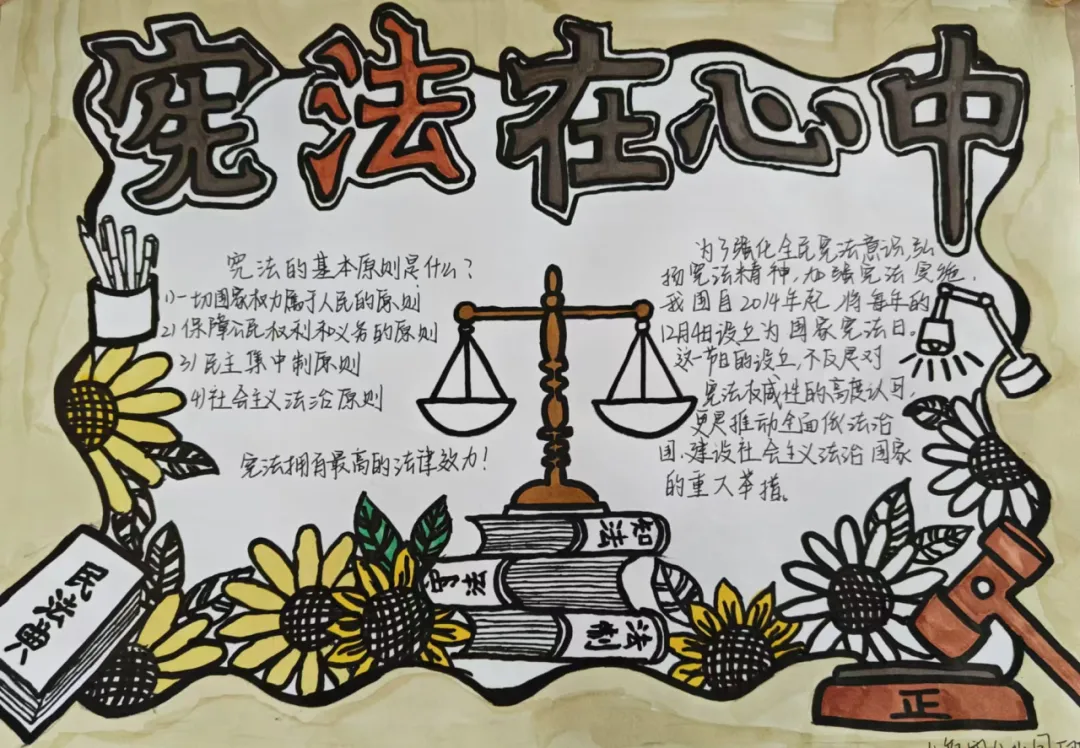 宪法在心中
宪法的基本原则是什么?
1)一切国家权力属于人民的原则
2)保障公民权利和义务的原则
3)民主集中制原则
4)社会主义法治原则
宪法拥有最高的法律效力!
为了强化全民宪法意识,弘
扬宪法精神,加强宪法实施,
我国自2014年起,将每年的
12月4日设立为国家宪法日。
这一节日的设立,不仅是对
宪法权威性的高度认可,
更是推动全面依法治
国、建设社会主义法治国家
的重大举措。
知法
法制
民法典
正